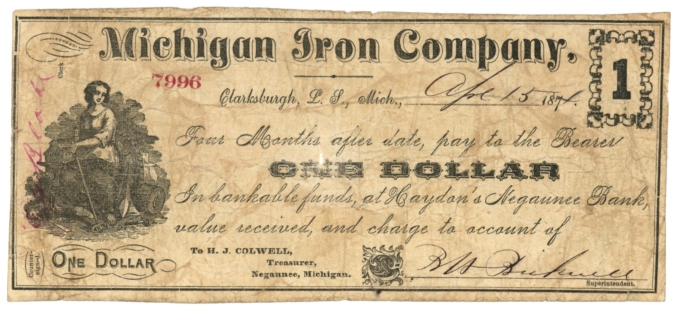 Michigan Iron Company,
7996
1
Clarksburgh, L. S., Mich., Apl 15 1874.
Four Months after date, pay to the Bearer
ONE DOLLAR
In bankable funds, at Haydon's Negaunee Bank,
value received, and charge to account of
To H. J. COLWELL,
Treasurer,
Negaunee, Michigan.
Superintendent.
ONE DOLLAR
Counter-
signed.